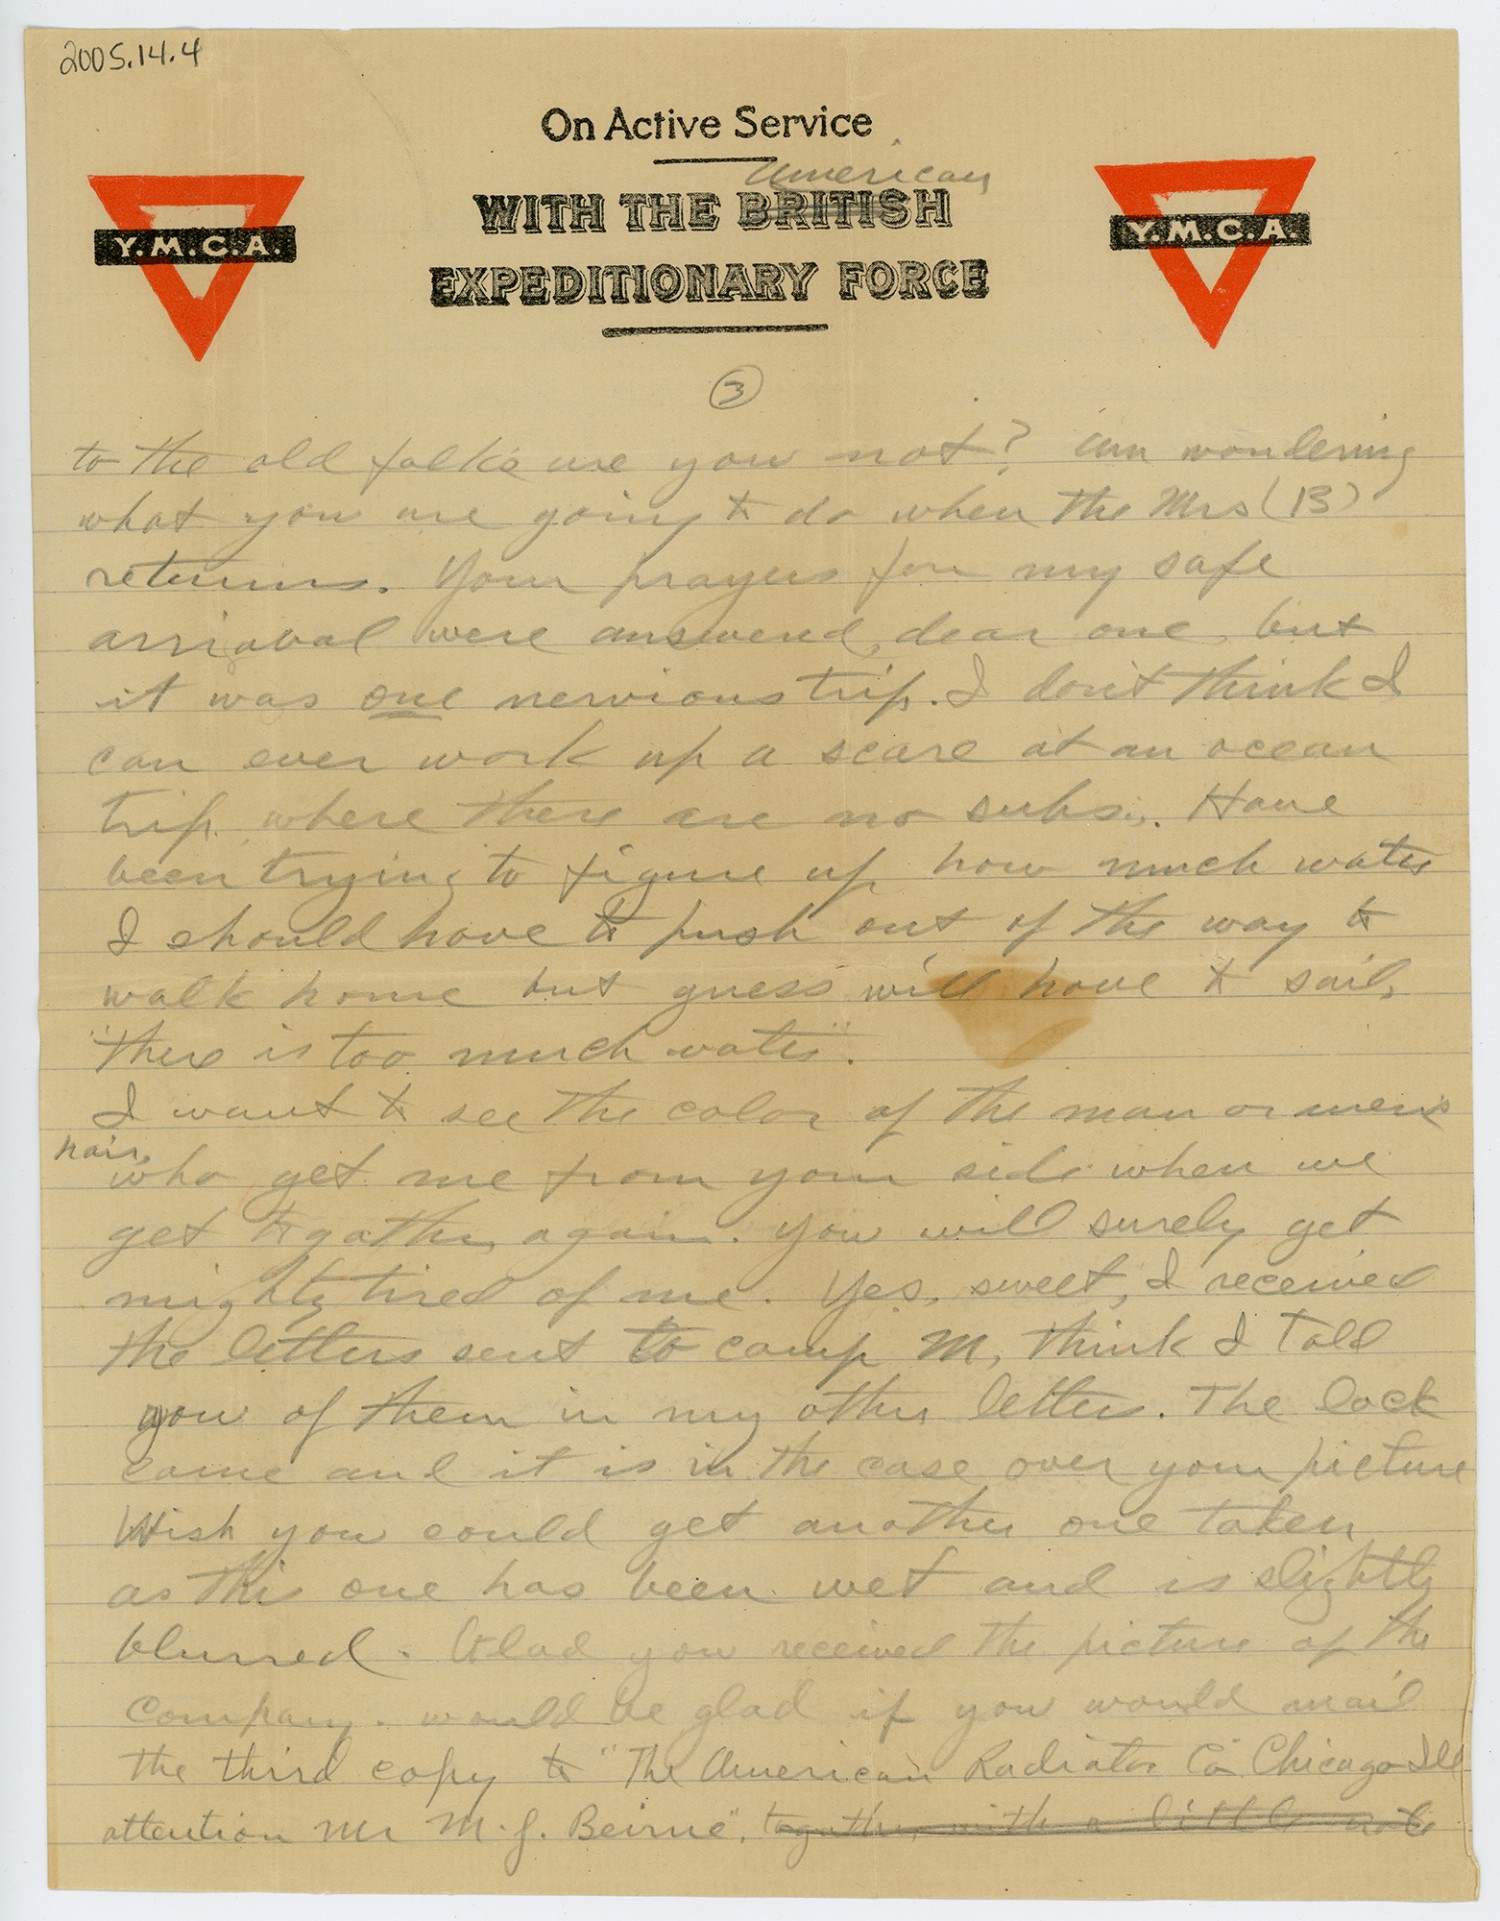 2005.14.4
On Active Service
American
WITH THE BRITISH
EXPEDITIONARY FORCE
Y.M.C.A.
Y.M.C.A.
3
to the old folks are you not? Am wondering
what you are going to do when the Mrs (B)
returns. Your prayers for my safe
arriaval were answered, dear one, but
it was one nervious trip. I don't think I
can ever work up a scare at an ocean
trip where there are no subs. Have
been trying to figure up how much water
I should have to push out of the way to
walk home but guess will have to sail,
"there is too much water".
I want to see the color of the man or men's
hair,
who get me from your side when we
get togather again. You will surely get
mighty tired of me. Yes, sweet, I received
the letters sent to camp M, think I told
you of them in my other letter. The lock
came and it is in the case over your picture
Wish you could get another one taken
as this one has been wet and is slightly
blurred. Glad you received the picture of the
company. would be glad if you would mail
the third copy to "The American Radiator Co Chicago Ill
attention Mr M. J. Beirne". togather with a little note